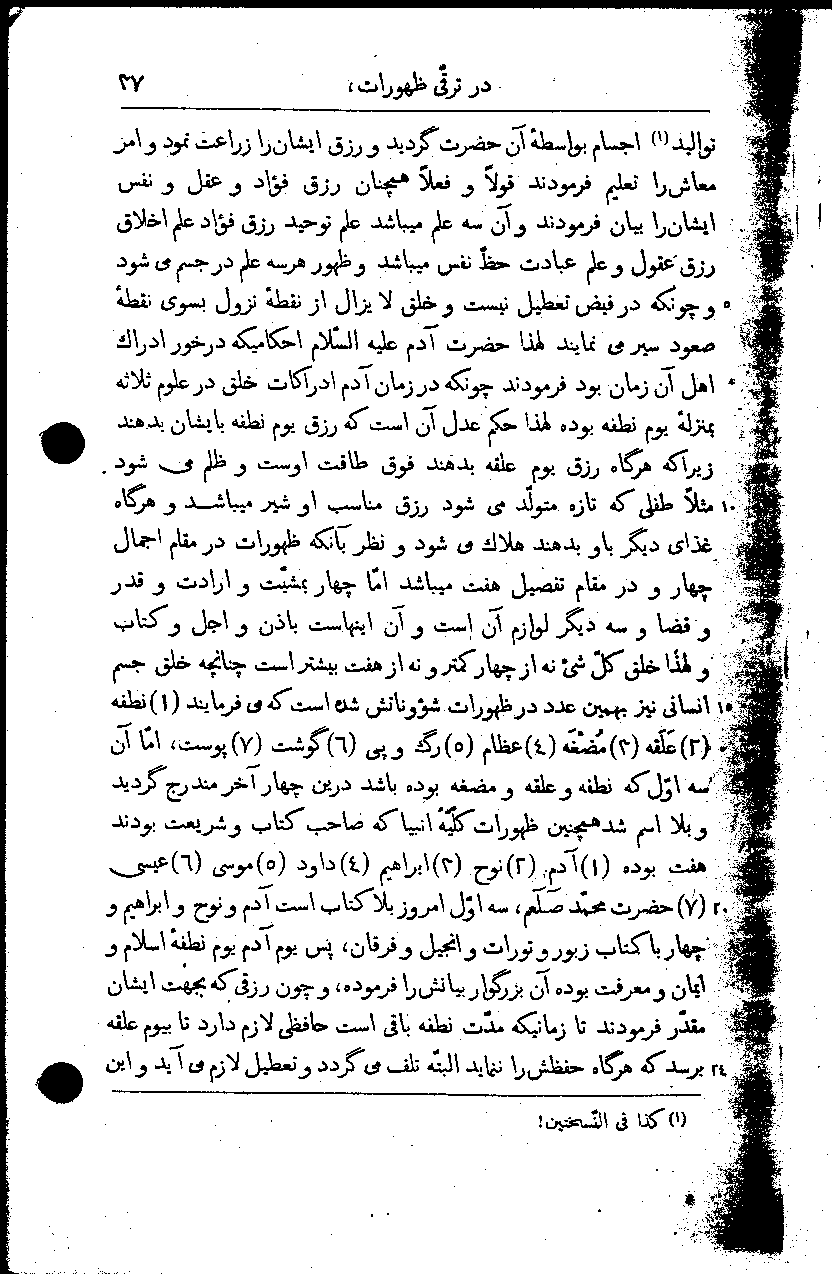 در ترقّی ظهورات، ۳۷
توالید (۱) اجسام بواسطهٔ آن حضرت گردید و رزق ایشان‌را زراعت نمود و امر
معاش‌را تعلیم فرمودند قولاً و فعلاً همچنان رزق فؤاد و عقل و نفس
ایشان‌را بیان فرمودند و آن سه علم میباشد علم توحید رزق فؤاد علم اخلاق
رزق عقول و علم عبادت حظّ نفس میباشد و ظهور هرسه علم در جسم می شود
۵ و چونکه در فیض تعطیل نیست و خلق لا یزال از نقطهٔ نزول بسوی نقطهٔ
صعود سیر می نمایند لهذا حضرت آدم علیه السّلام احکامیکه درخور ادراك
اهل آن زمان بود فرمودند چونکه در زمان آدم ادراکات خلق در علوم ثلاثه
بمنزلهٔ یوم نطفه بوده لهذا حکم عدل آن است که رزق یوم نطفه بایشان بدهند
زیراکه هرگاه رزق یوم علقه بدهند فوق طاقت اوست و ظلم می شود
۱۰ مثلاً طفلی که تازه متولّد می شود رزق مناسب او شیر میباشد و هرگاه
غذای دیگر باو بدهند هلاك می شود و نظر بآنکه ظهورات در مقام اجمال
چهار و در مقام تفصیل هفت میباشد امّا چهار بمشیّت و ارادت و قدر
و قضا و سه دیگر لوازم آن است و آن اینهاست باذن و اجل و کتاب
و لهذا خلق کلّ شئ نه از چهار کمتر و نه از هفت بیشتر است چنانچه خلق جسم
۱۵ انسانی نیز بهمین عدد در ظهورات شؤوناتش شده است که می فرمایند (۱) نطفه
(۲) عَلَقه (۳) مُضْغَه (٤) عظام (۵) رگ و پی (٦) گوشت (۷) پوست، امّا آن
سه اوّل که نطفه و علقه و مضغه بوده باشد درین چهار آخر مندرج گردید
و بلا اسم شد همچنین ظهورات کلّیّهٔ انبیا که صاحب کتاب و شریعت بودند
هفت بوده (۱) آدم (۲) نوح (۳) ابراهیم (٤) داود (۵) موسی (٦) عیسی
۲۰ (۷) حضرت محمّد صلّعم، سه اوّل امروز بلا کتاب است آدم و نوح و ابراهیم و
چهار با کتاب زبور و تورات و انجیل و فرقان، پس یوم آدم یوم نطفهٔ اسلام و
ایمان و معرفت بوده آن بزرگوار بیانش‌را فرموده، و چون رزقی که بجهت ایشان
مقدّر فرمودند تا زمانیکه مدّت نطفه باقی است حافظی لازم دارد تا بیوم علقه
۲٤ برسد که هرگاه حفظش‌را ننماید البتّه تلف می گردد و تعطیل لازم می آید و این
(۱) کذا فی النّسختین!